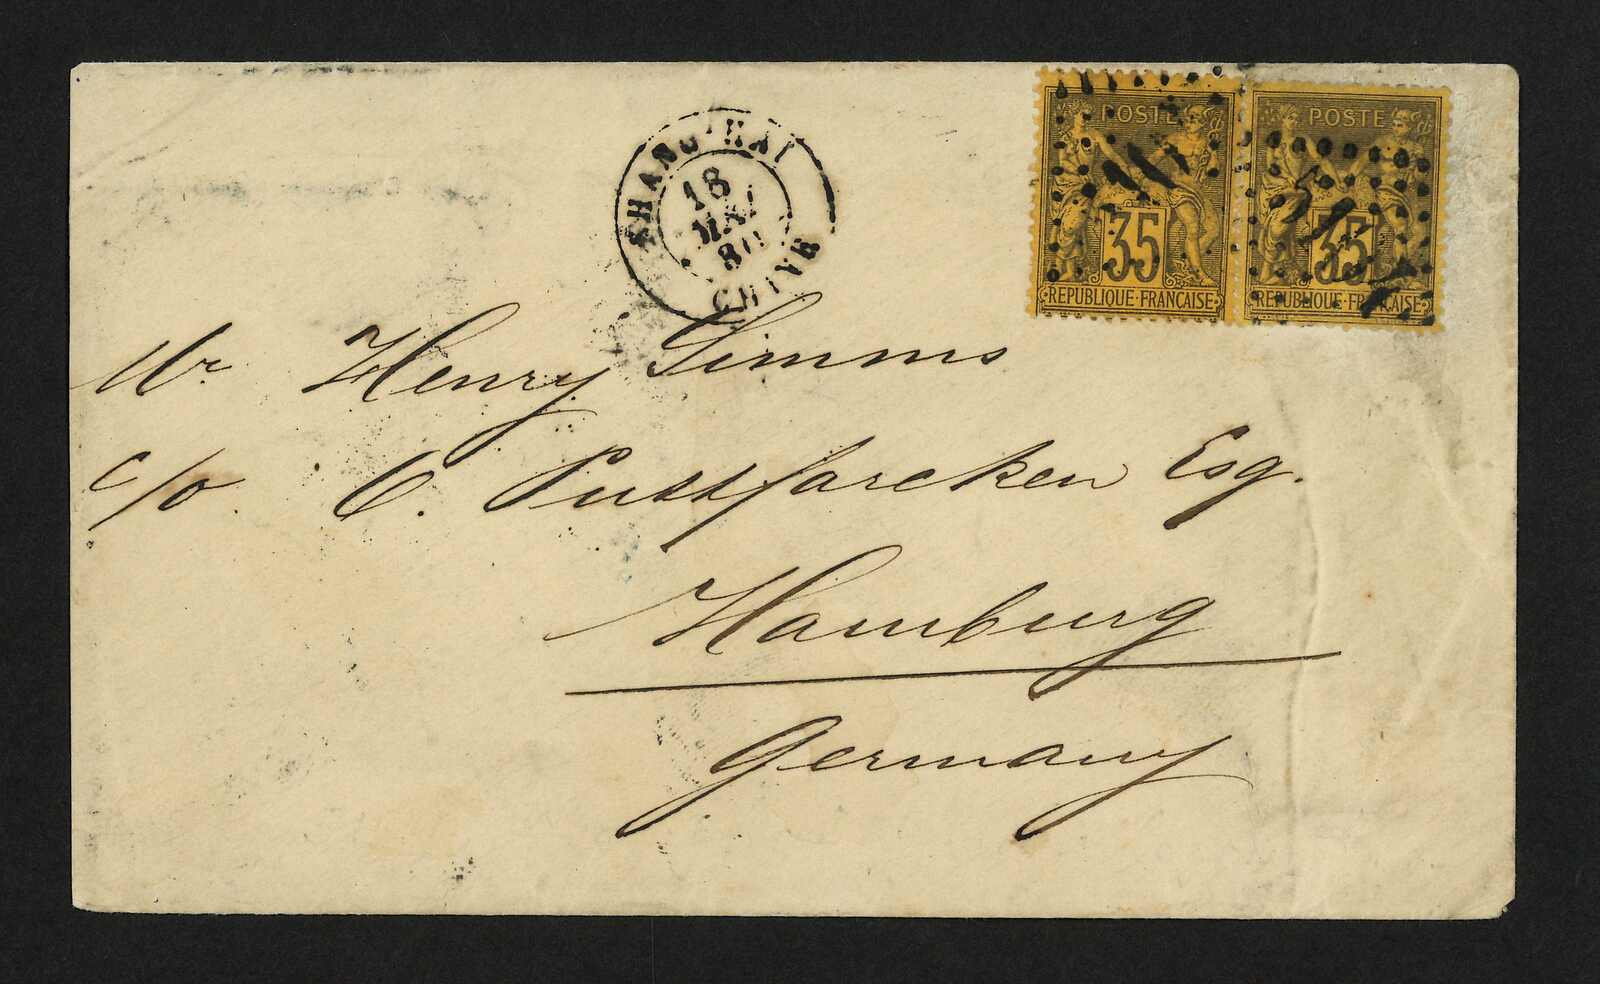 SHANG-HAI
18
MAI
80
CHINE
POSTE
35
REPUBLIQUE FRANÇAISE
POSTE
35
REPUBLIQUE FRANÇAISE
Mr Henry Simms
c/o C. Puttfarcken Esq.
Hamburg
Germany